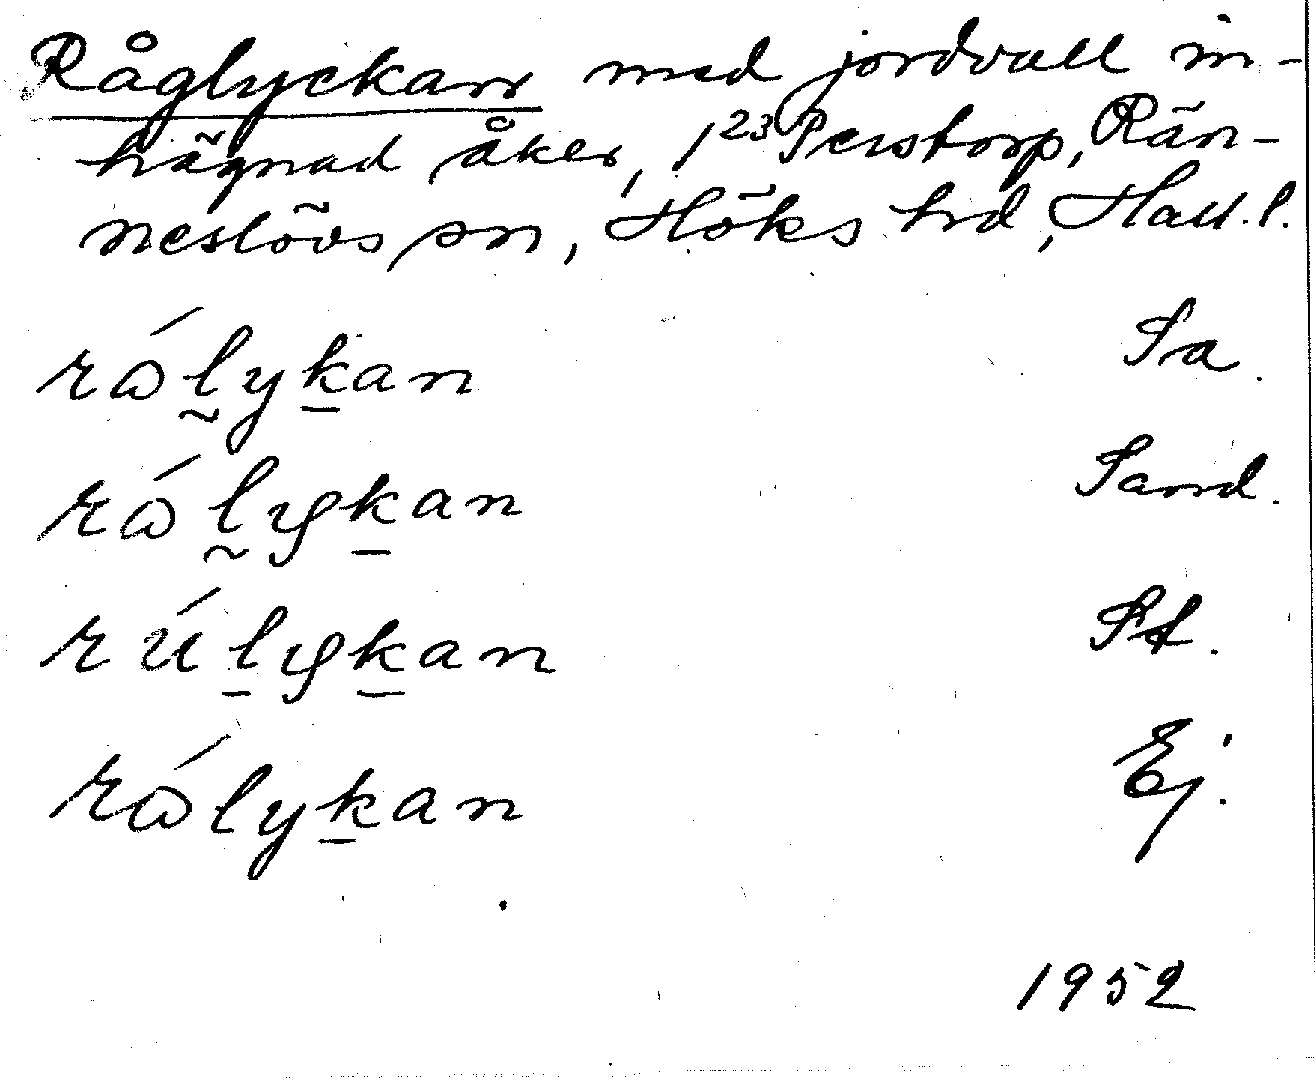 Råglyckan med jordvall in-
hägnad åker, 1²³ Perstorp, Rän-
neslövs sn, Höks hd, Hall. l.
rǻl̰yḵan Sa.
rǻl̰yḵan Sand.
rúḻyḵan St.
rǻlyḵan Ej.
1952